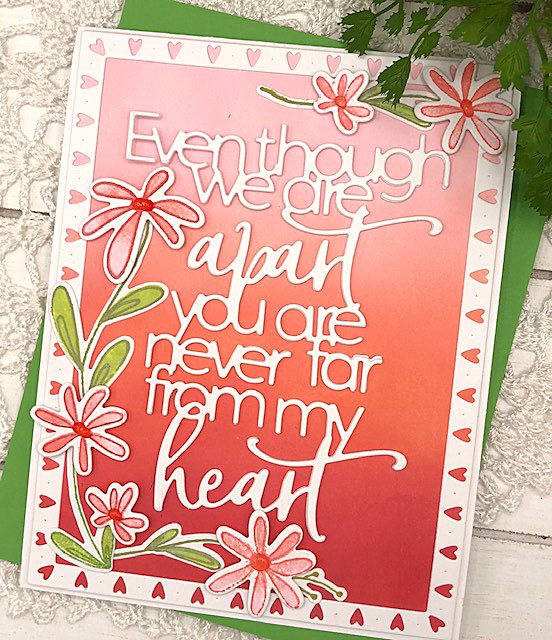 Even though
we are
apart
you are
never far
from my
heart